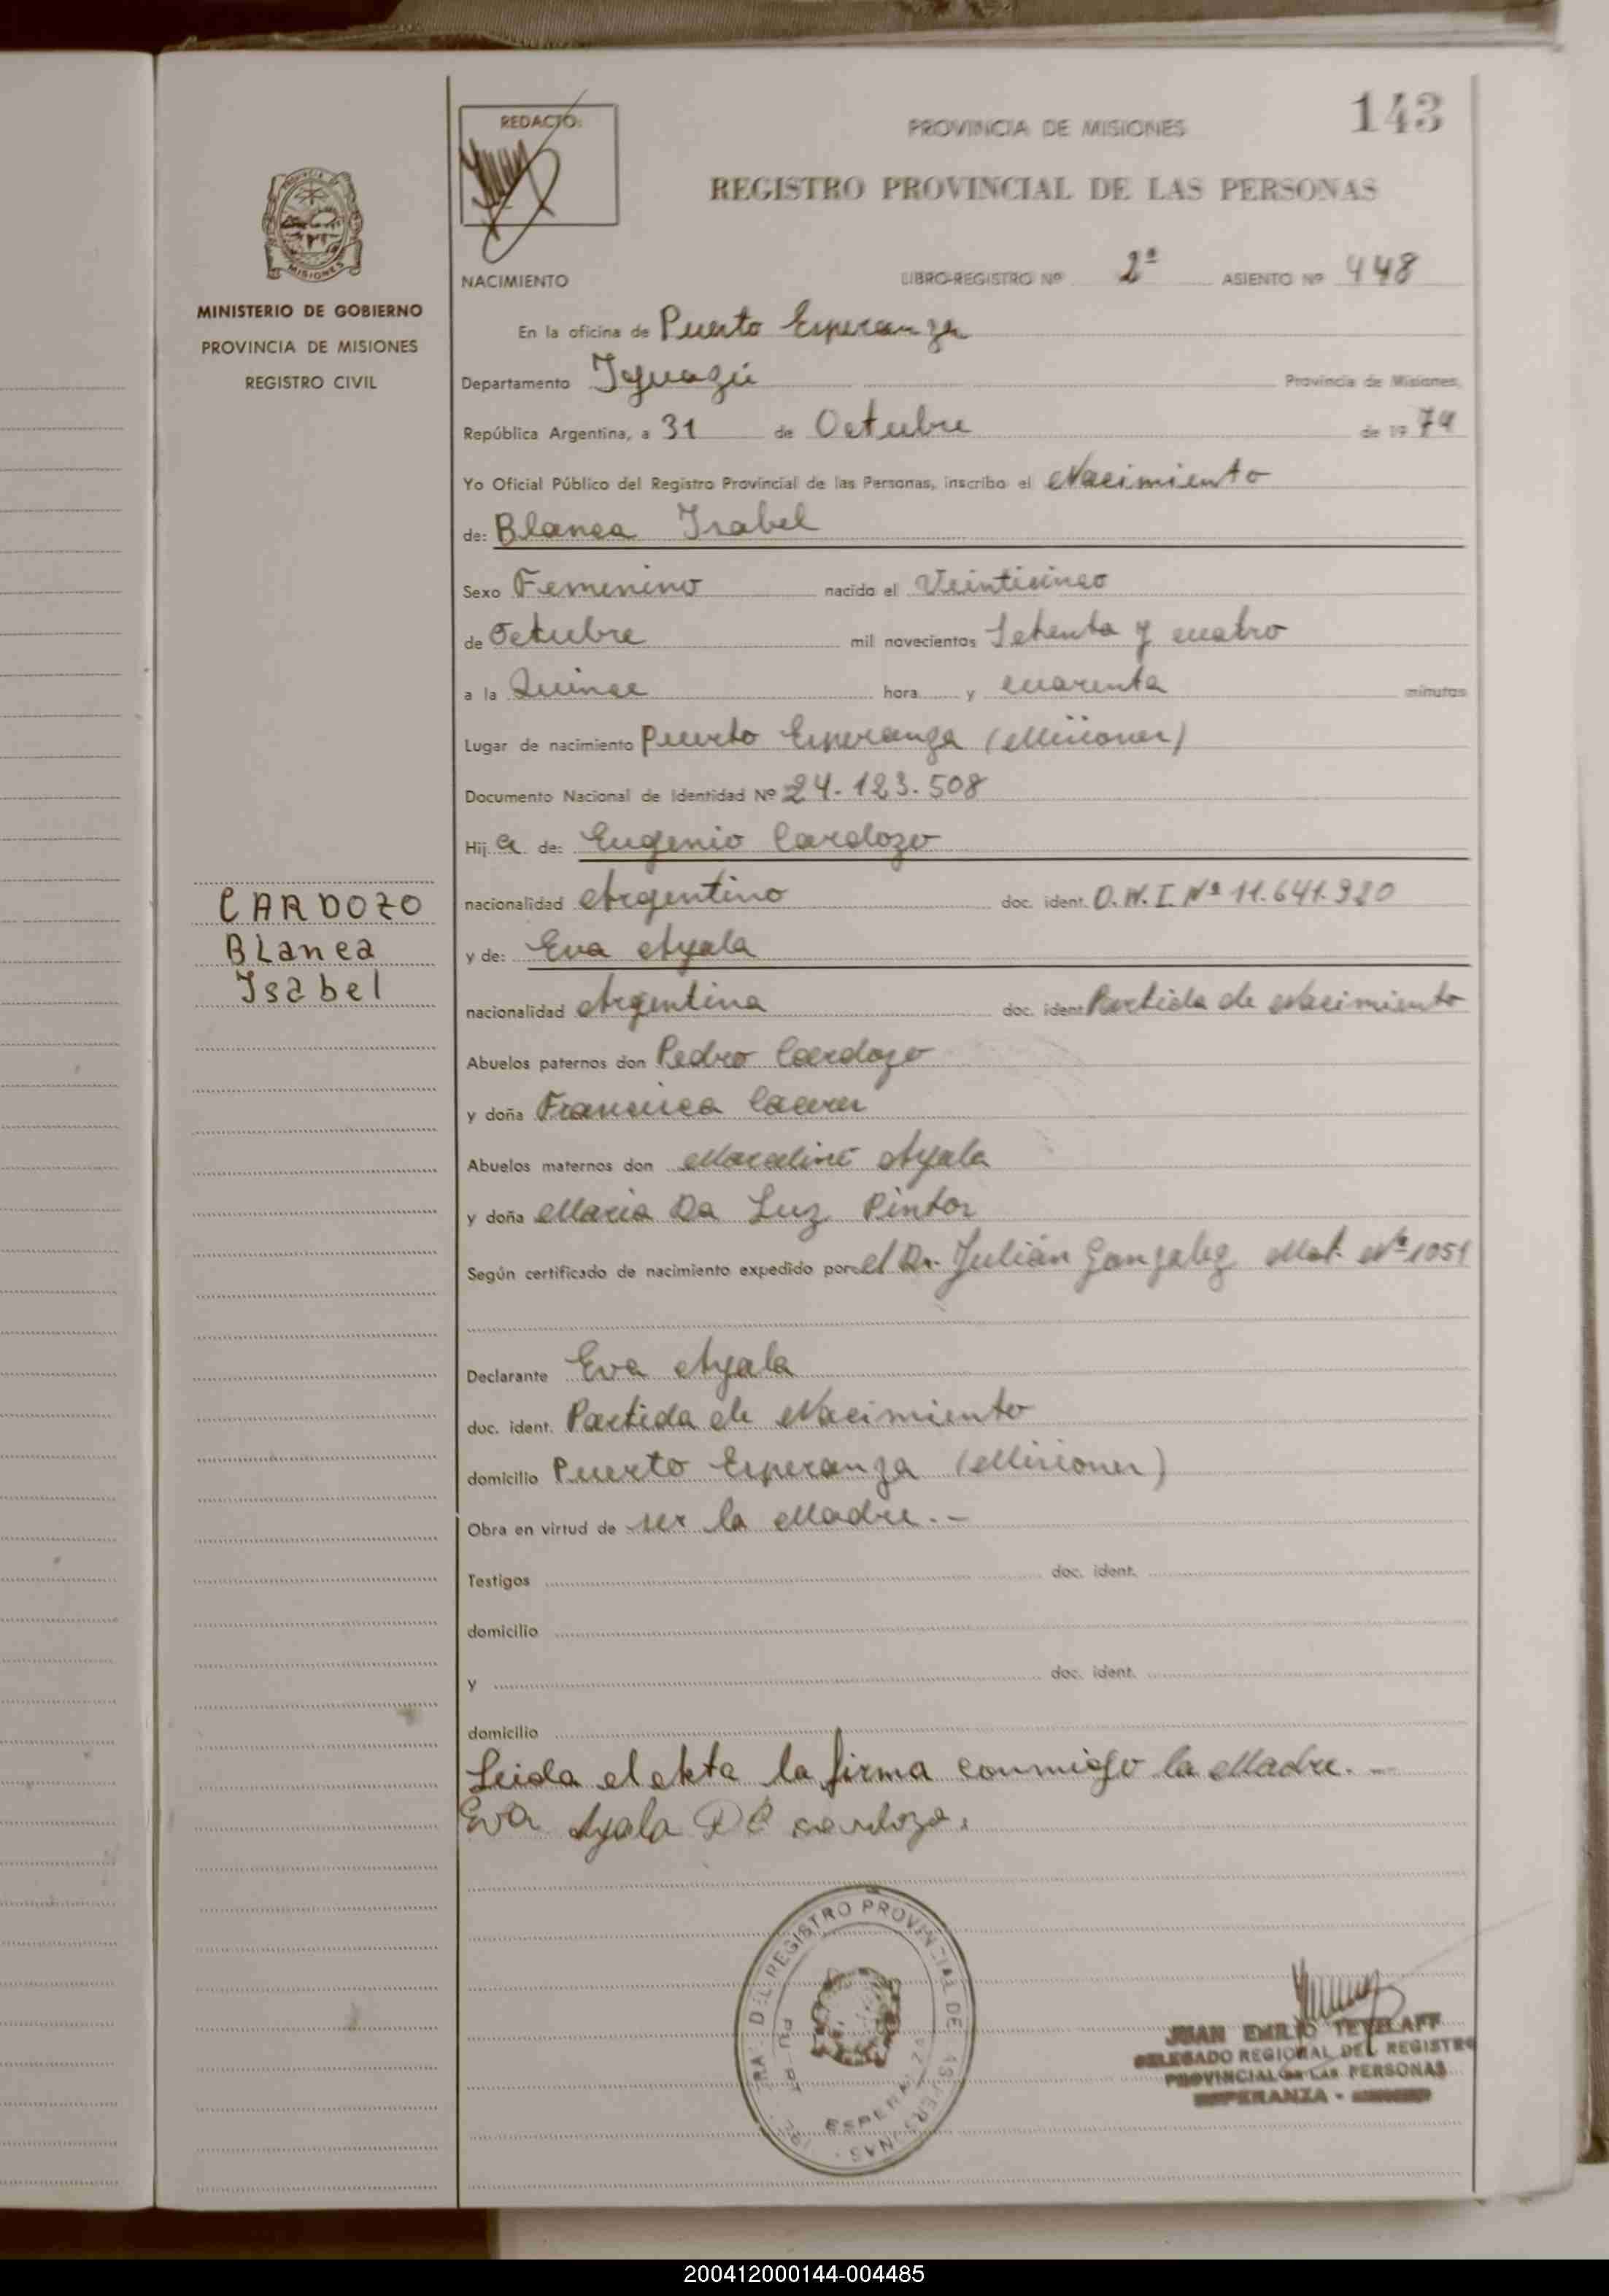 143
REDACTÓ:
PROVINCIA DE MISIONES
REGISTRO PROVINCIAL DE LAS PERSONAS
MISIONES
NACIMIENTO LIBRO-REGISTRO Nº 2ª ASIENTO Nº 448
MINISTERIO DE GOBIERNO
PROVINCIA DE MISIONES
REGISTRO CIVIL
En la oficina de Puerto Esperanza
Departamento Iguazú Provincia de Misiones,
República Argentina, a 31 de Octubre de 1974
Yo Oficial Público del Registro Provincial de las Personas, inscribo el Nacimiento
de: Blanca Isabel
Sexo Femenino nacido el Veinticinco
de Octubre mil novecientos Setenta y cuatro
a la Quince hora y cuarenta minutos
Lugar de nacimiento Puerto Esperanza (Misiones)
Documento Nacional de Identidad Nº 24.123.508
Hij a de: Eugenio Cardozo
CARDOZO
Blanca
Isabel
nacionalidad Argentino doc. ident. D.N.I. Nº 11.641.980
y de: Eva Ayala
nacionalidad Argentina doc. ident. Partida de Nacimiento
Abuelos paternos don Pedro Cardozo
y doña Francisca
Abuelos maternos don Marcelino Ayala
y doña Maria Da Luz Pintos
Según certificado de nacimiento expedido por el Dr. Julián Gonzalez Mat. Nº 1051
Declarante Eva Ayala
doc. ident. Partida de Nacimiento
domicilio Puerto Esperanza (Misiones)
Obra en virtud de ser la Madre.-
Testigos doc. ident.
domicilio
y doc. ident.
domicilio
Leida el Akta la firma conmigo la Madre.-
Eva Ayala DE cardozo.
DEL REGISTRO PROVINCIAL DE LAS PERSONAS
JUAN EMILIO TETZLAFF
DELEGADO REGIONAL DEL REGISTRO
PROVINCIAL DE LAS PERSONAS
ESPERANZA -
200412000144-004485